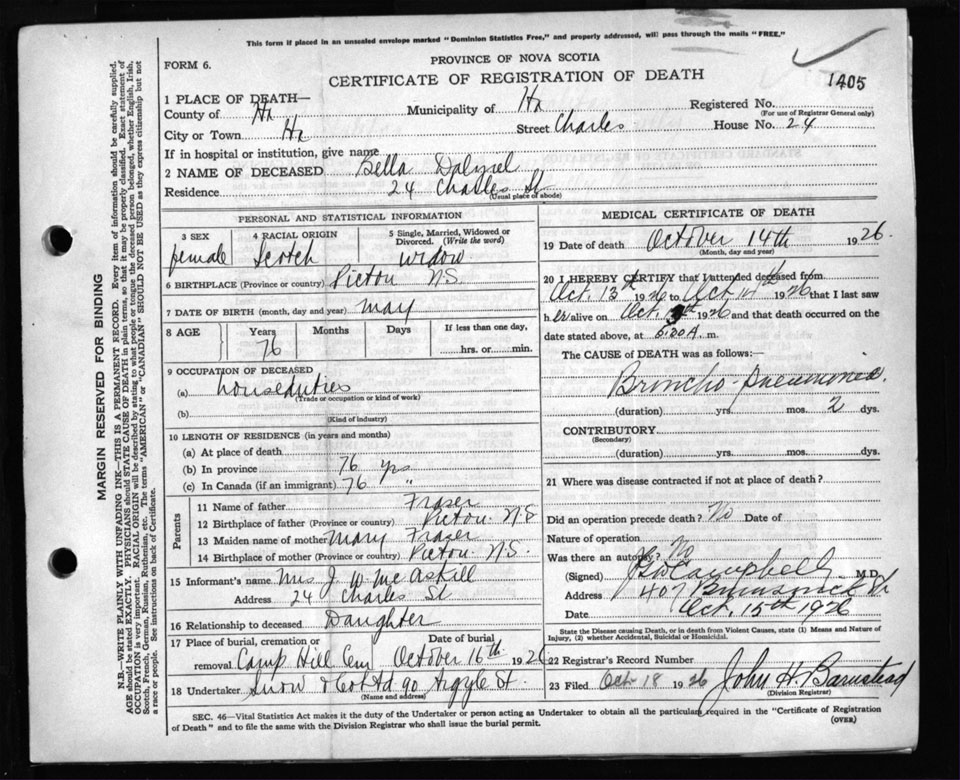 This form if placed in an unsealed envelope marked "Dominion Statistics Free," and properly addressed, will pass through the mails "FREE."
FORM 6.
PROVINCE OF NOVA SCOTIA
CERTIFICATE OF REGISTRATION OF DEATH
1405
1 PLACE OF DEATH—
County of Hx Municipality of Hx Registered No.
(For use of Registrar General only)
City or Town Hx Street Charles House No. 24
If in hospital or institution, give name
2 NAME OF DECEASED Bella Dalziel
Residence 24 Charles St
(Usual place of abode)
PERSONAL AND STATISTICAL INFORMATION
3 SEX female
4 RACIAL ORIGIN Scotch
5 Single, Married, Widowed or Divorced. (Write the word) widow
6 BIRTHPLACE (Province or country) Pictou N.S.
7 DATE OF BIRTH (month, day and year) May
8 AGE Years Months Days If less than one day,
76 hrs. or min.
9 OCCUPATION OF DECEASED
(a) houseduties
(Trade or occupation or kind of work)
(b)
(Kind of industry)
10 LENGTH OF RESIDENCE (in years and months)
(a) At place of death
(b) In province 76 yrs
(c) In Canada (if an immigrant) 76 "
Parents
11 Name of father Fraser
12 Birthplace of father (Province or country) Pictou N.S
13 Maiden name of mother Mary Fraser
14 Birthplace of mother (Province or country) Pictou N.S.
15 Informant's name Mrs J. W. McAskill
Address 24 Charles St
16 Relationship to deceased Daughter
17 Place of burial, cremation or Date of burial
removal Camp Hill Cem October 16th 1926
18 Undertaker Snow & Co Ltd 90 Argyle St.
(Name and address)
MEDICAL CERTIFICATE OF DEATH
19 Date of death October 14th 1926
(Month, day and year)
20 I HEREBY CERTIFY that I attended deceased from
Oct. 13th 1926 to Oct 14th 1926 that I last saw
her alive on Oct 1926 and that death occurred on the
date stated above, at 6.30 A. m.
The CAUSE OF DEATH was as follows:
Broncho-pneumonia.
(duration) yrs. mos. 2 dys.
CONTRIBUTORY
(Secondary)
(duration) yrs. mos. dys.
21 Where was disease contracted if not at place of death?
Did an operation precede death? No Date of
Nature of operation
Was there an autopsy? No
(Signed) Campbell M.D.
Address 407 Brunswick St
Date Oct. 15th 1926
State the Disease causing Death, or in death from Violent Causes, state (1) Means and Nature of
Injury, (2) whether Accidental, Suicidal or Homicidal.
22 Registrar's Record Number
23 Filed Oct 18 1926 John H. Barnstead
(Division Registrar)
SEC. 46—Vital Statistics Act makes it the duty of the Undertaker or person acting as Undertaker to obtain all the particulars required in the "Certificate of Registration
of Death" and to file the same with the Division Registrar who shall issue the burial permit.
(OVER)
MARGIN RESERVED FOR BINDING
N.B.—WRITE PLAINLY WITH UNFADING INK—THIS IS A PERMANENT RECORD. Every item of information should be carefully supplied.
AGE should be stated EXACTLY. PHYSICIANS should STATE CAUSE OF DEATH in plain terms, so that it may be properly classified. Exact statement of
OCCUPATION is very important. RACIAL ORIGIN will be described by stating to what people or tongue the deceased person belonged, whether English, Irish,
Scotch, French, German, Russian, Ruthenian, etc. The terms "AMERICAN" or "CANADIAN" SHOULD NOT BE USED as they express citizenship but not
a race or people. See instructions on back of Certificate.